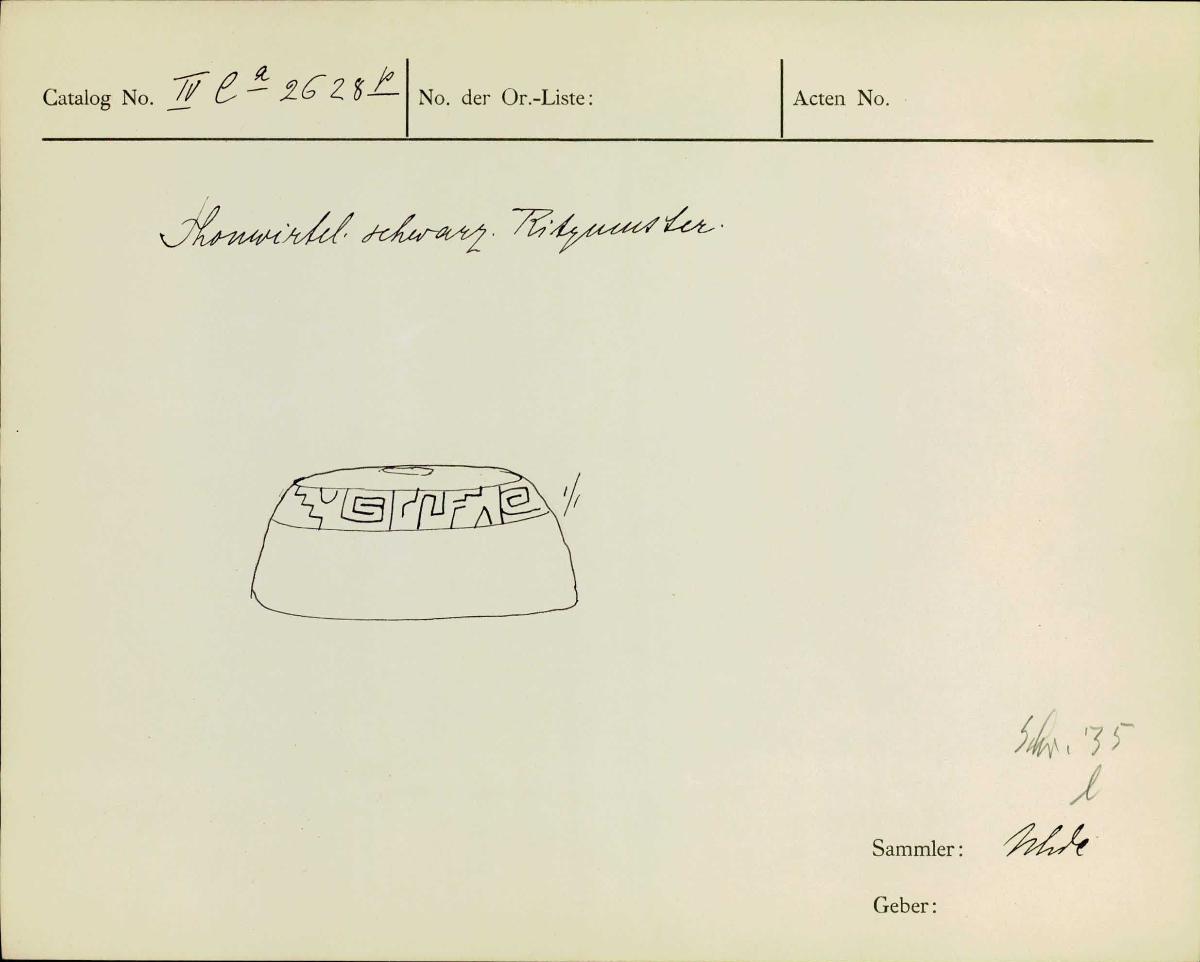 Catalog No. IV C a 2628 p
No. der Or.-Liste:
Acten No.
Thonwirtel. schwarz. Ritzmuster.
1/1
Schr. '35
l
Sammler: Uhde
Geber: